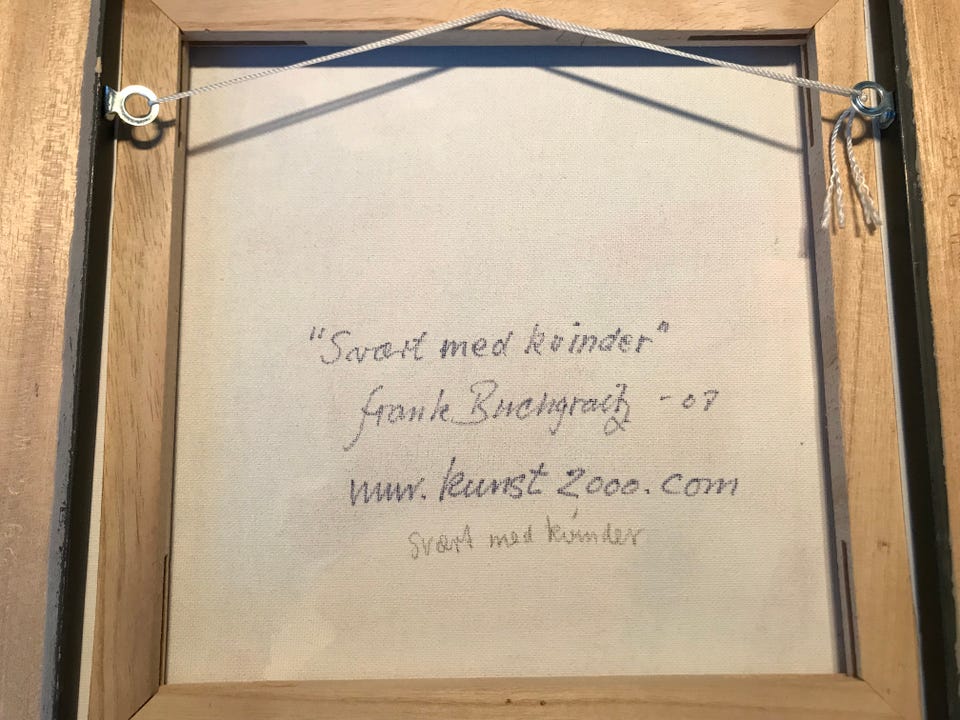 "Svært med kvinder"
Frank Buchgraitz -07
www.kunst2000.com
svært med kvinder